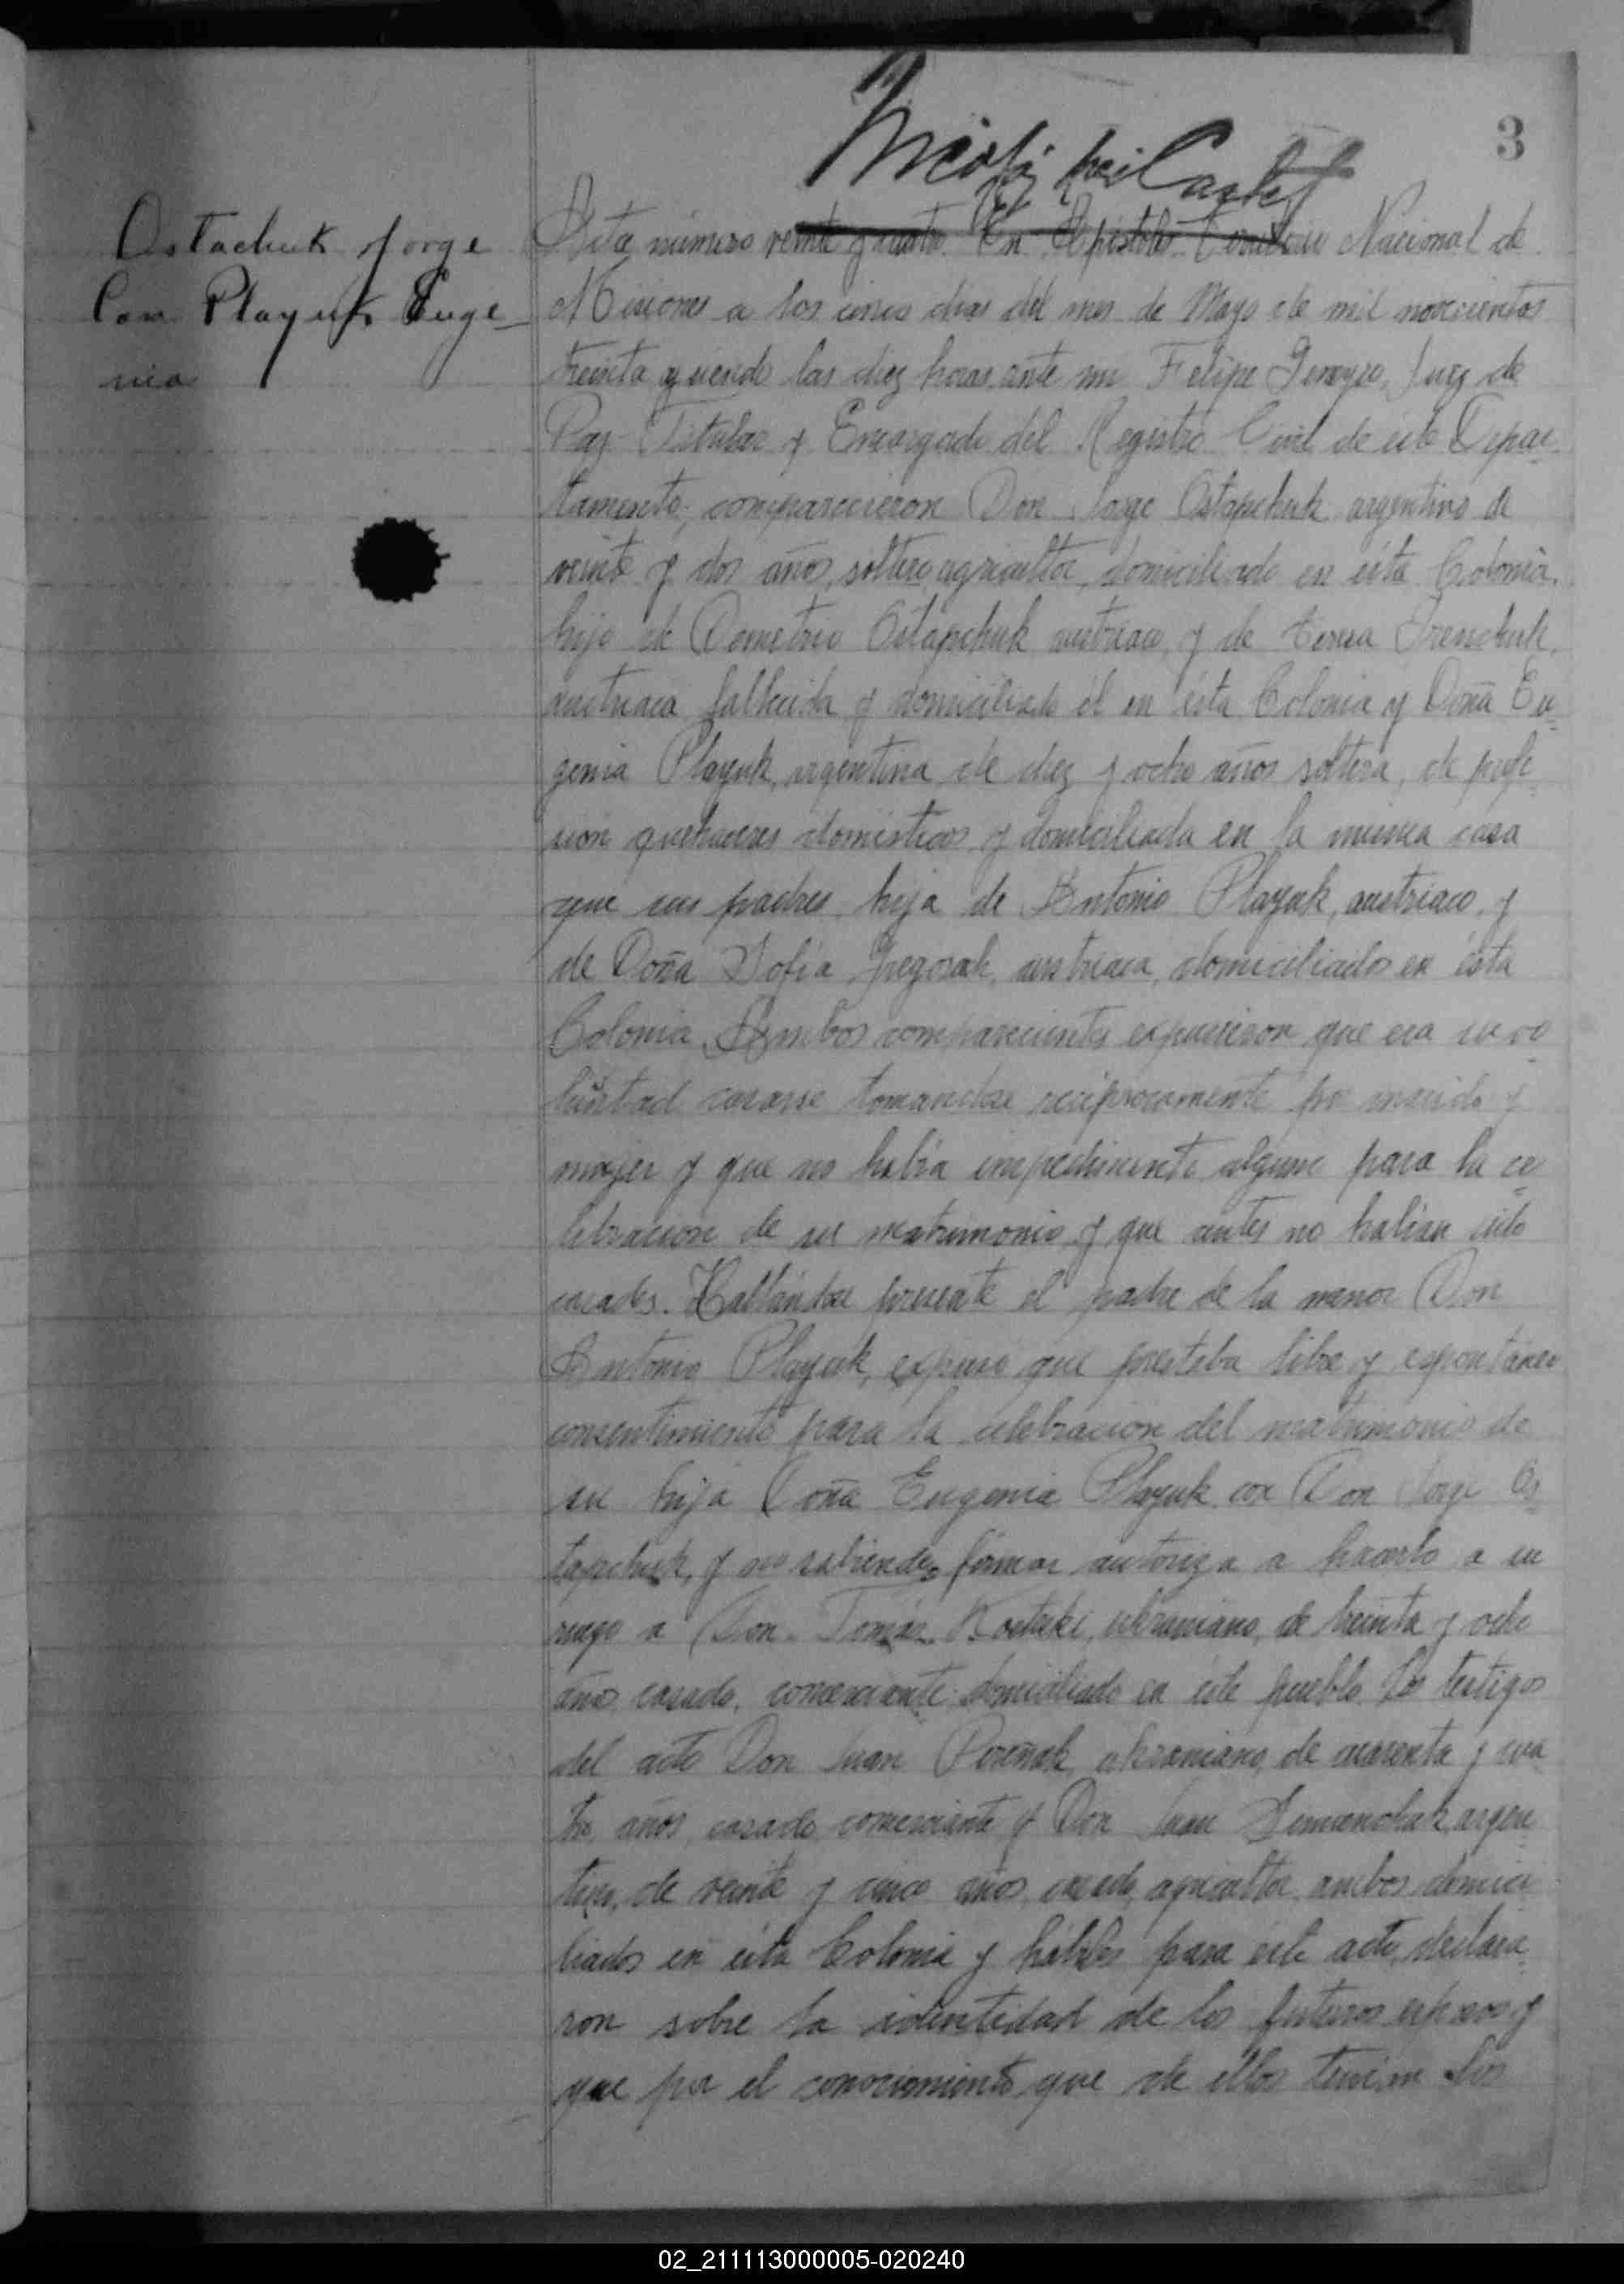 3
Ostachuk Jorge
Con Playuk Euge-
nia
Acta número veinte y cuatro. En Apóstoles Territorio Nacional de
Misiones a los cinco dias del mes de Mayo de mil novecientos
treinta y siendo las diez horas, ante mi Felipe Juez de
Paz Titular y Encargado del Registro Civil de este Depar-
tamento, comparecieron Don Jorge Ostapchuk argentino de
veinte y dos años, soltero, agricultor, domiciliado en ésta Colonia,
hijo de Demetrio Ostapchuk austriaco, y de Teresa
austriaca fallecida y domiciliado él en ésta Colonia y Doña Eu-
genia Playuk, argentina de diez y ocho años soltera, de profe-
sion quehaceres domésticos y domiciliada en la misma casa
que sus padres, hija de Antonio Playuk, austriaco, y
de Doña Sofía Gregorak, austriaca, domiciliados en ésta
Colonia. Ambos comparecientes expusieron que era su vo
luntad casarse tomandose reciprocamente por marido y
mujer y que no habia impedimento alguno para la ce-
lebracion de su matrimonio y que antes no habian sido
casados. Hallándose presente el padre de la menor Don
Antonio Playuk, expuso que prestaba libre y espontáneo
consentimiento para la celebracion del matrimonio de
su hija Doña Eugenia Playuk con Don Jorge Os-
tapchuk, y no sabiendo firmar autoriza a hacerlo a su
ruego a Don Tomás ukraniano, de treinta y ocho
años, casado, comerciante domiciliado en este pueblo. Los testigos
del acto Don Juan ukraniano, de cuarenta y cua
tro años, casado, comerciante y Don Juan argen-
tino, de veinte y cinco años, casado, agricultor, ambos domici
liados en ésta Colonia y hábiles para éste acto, declara-
ron sobre la identidad de los futuros esposos y
que por el conocimiento que de ellos tenian los
02_211113000005-020240